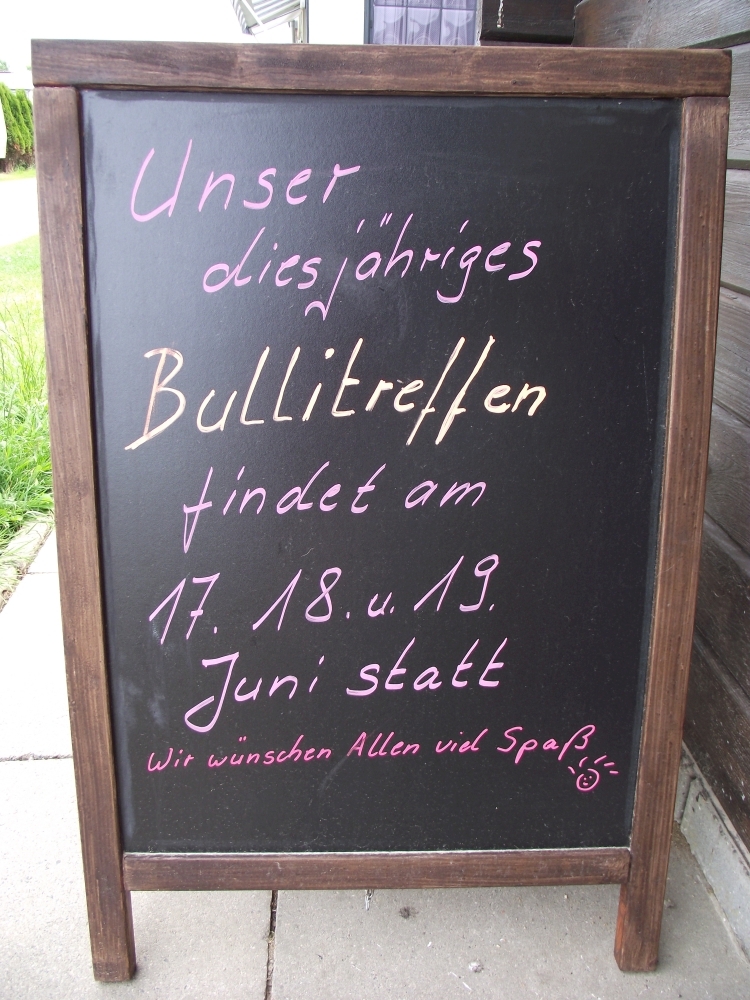 Unser
diesjähriges
Bullitreffen
findet am
17. 18. u. 19.
Juni statt
Wir wünschen Allen viel Spaß